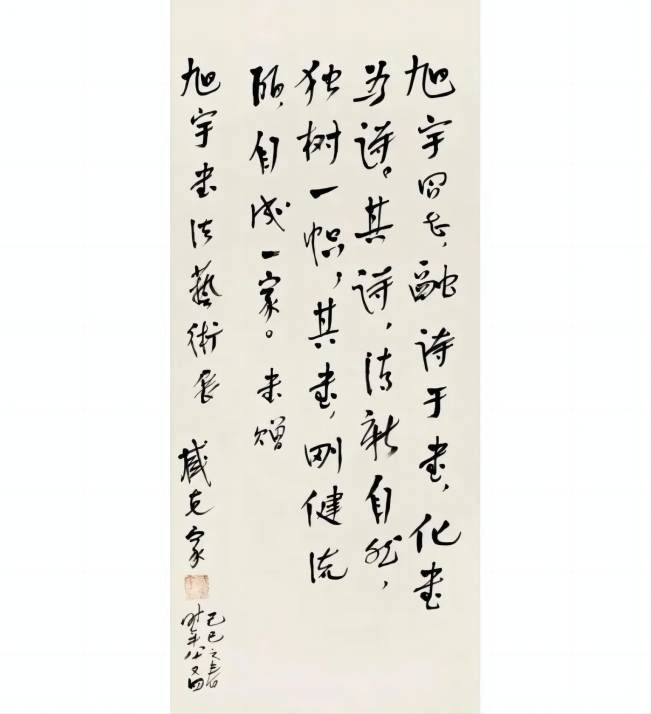 旭宇同志,融诗于书,化书
为诗。其诗,清新自然,
独树一帜,其书,刚健流
丽,自成一家。书赠
旭宇书法藝術展 臧克家
己巳之春
时年八十又四